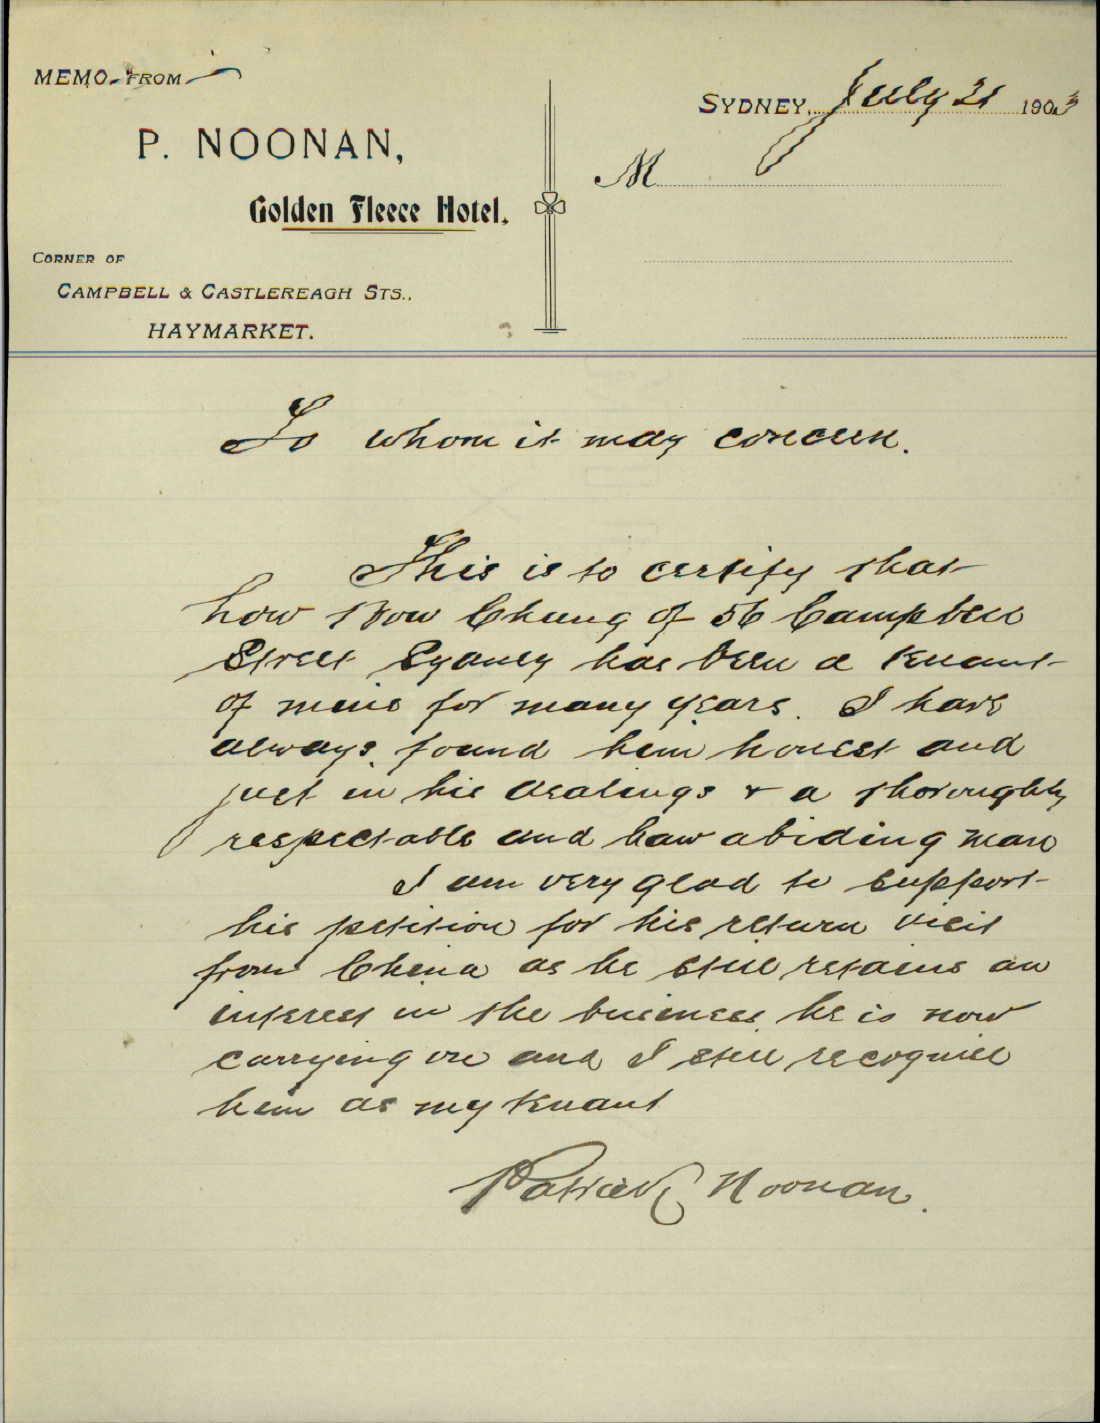 MEMO. FROM
P. NOONAN,
Golden Fleece Hotel.
CORNER OF
CAMPBELL & CASTLEREAGH STS.,
HAYMARKET.
SYDNEY, July 21 1903
M
To whom it may concern.
This is to certify that
how Bow Chung of 56 Campbell
Street Sydney has been a tenant
of mine for many years. I have
always found him honest and
just in his dealings & a thoroughly
respectable and law abiding man
I am very glad to support
his petition for his return visit
from China as he still retains an
interest in the business he is now
carrying on and I still recognise
him as my tenant
Patrick Noonan.